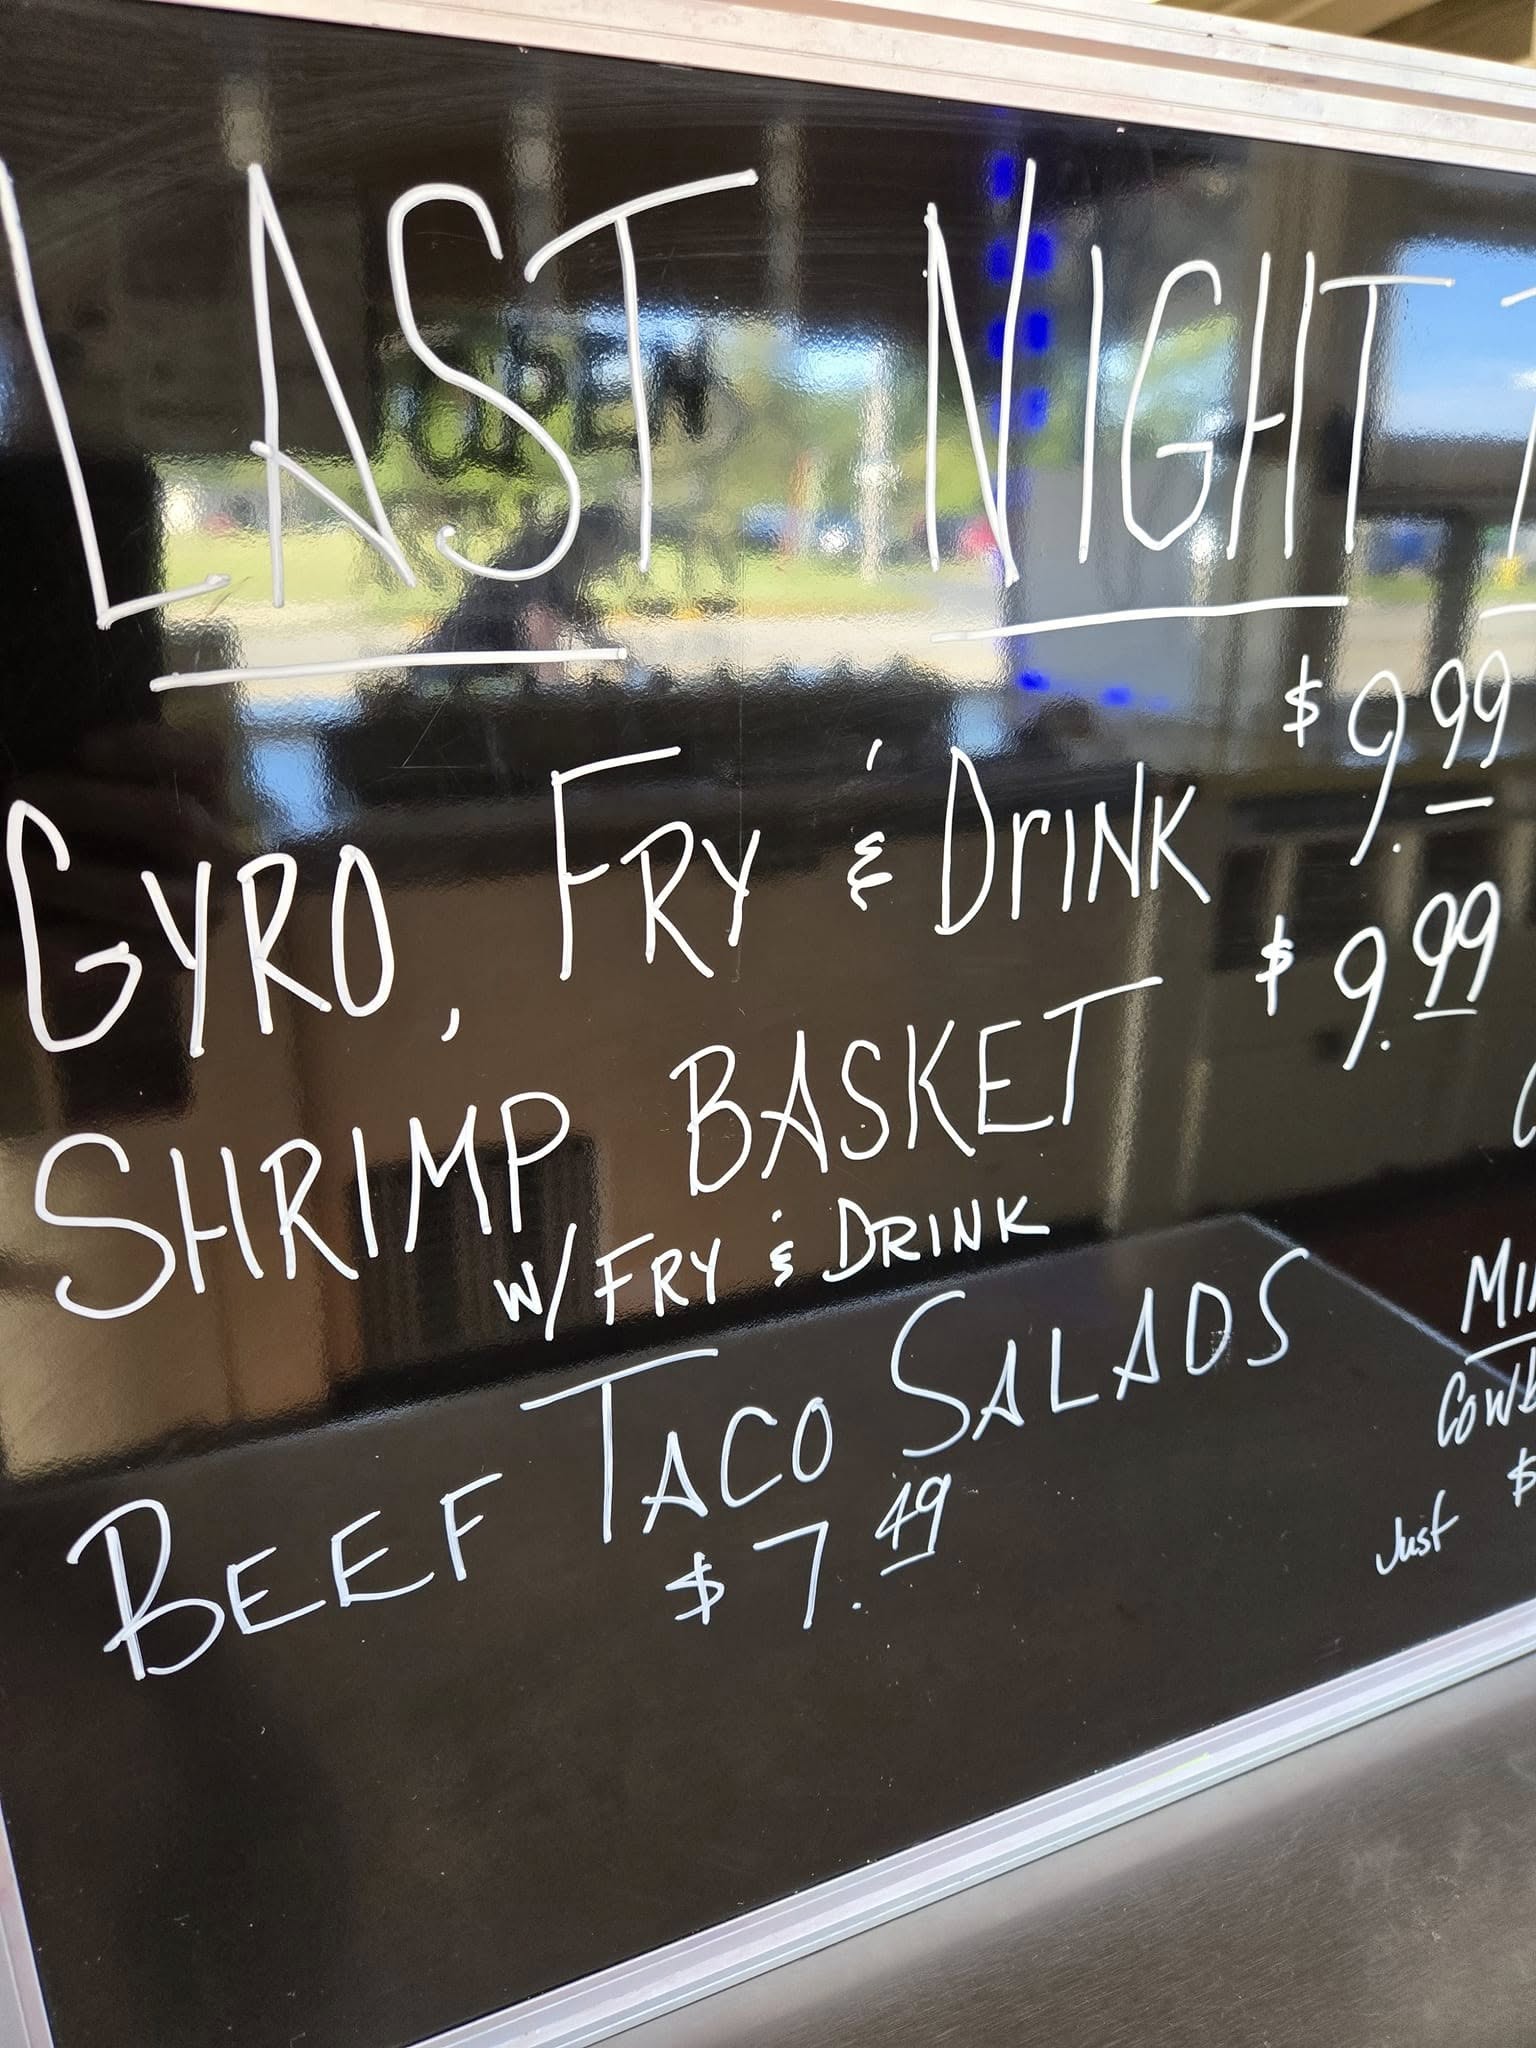 LAST NIGHT
GYRO, FRY & DRINK $9.99
SHRIMP BASKET $9.99
W/ FRY & DRINK
BEEF TACO SALADS
$7.49
Just $